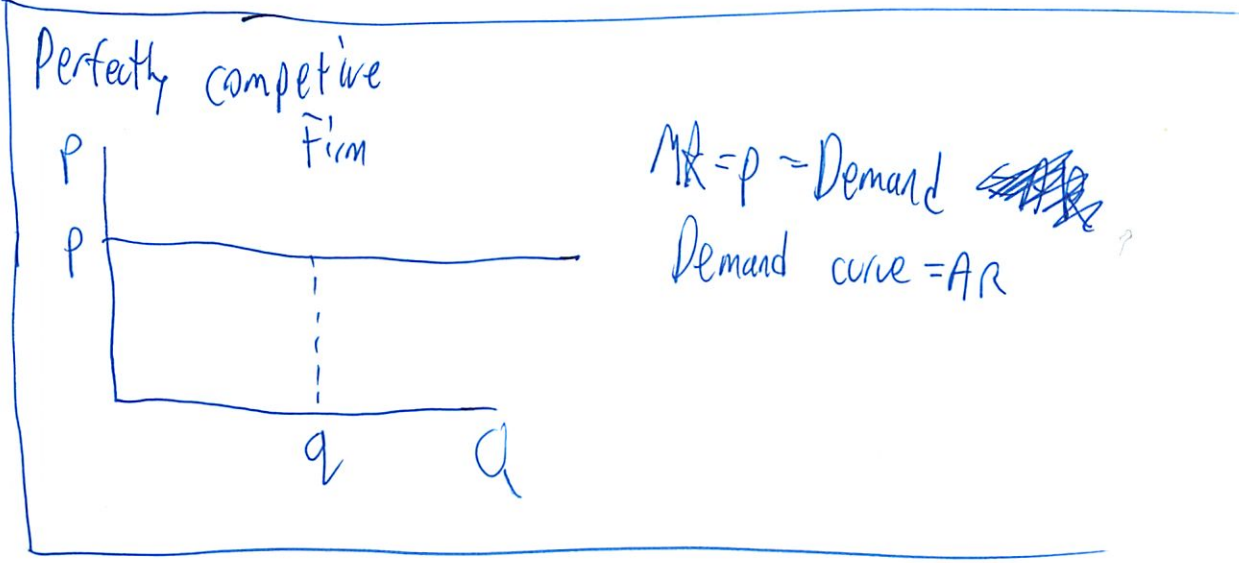 Perfectly competive
Firm
P
P
q
Q
MR = P = Demand
Demand curve = AR